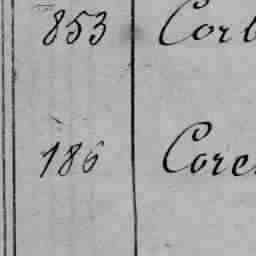 853 Corb
186 Core